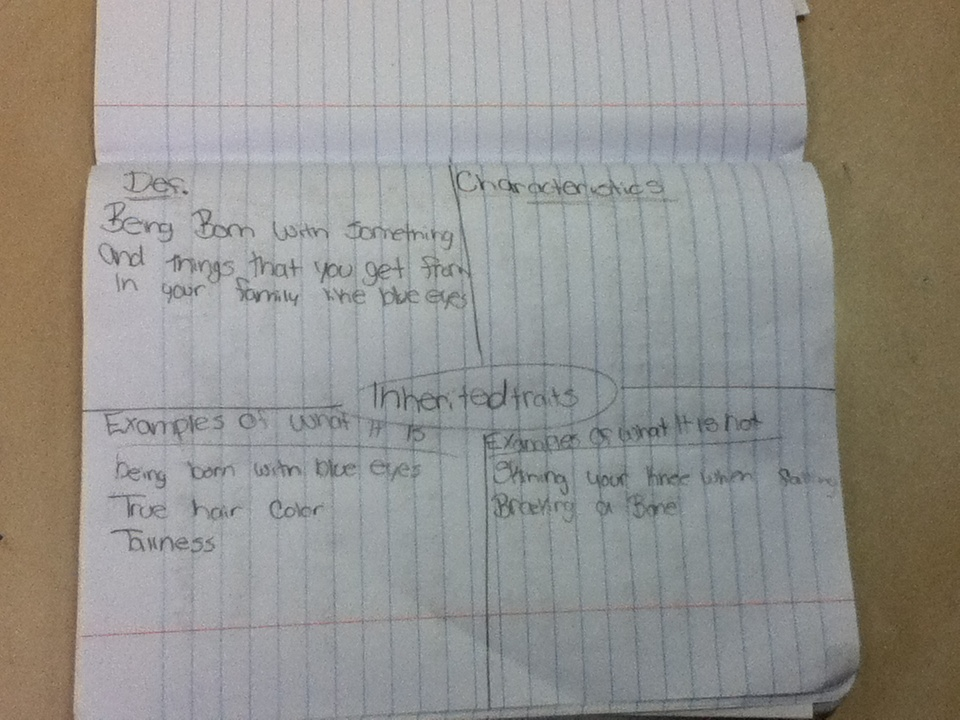 Def.
Being Born with something
and things that you get from
in your family like blue eyes
Characteristics
Inherited traits
Examples of what it is
being born with blue eyes
True hair color
Tallness
Examples of what it is not
Skinning your knee when falling
Breaking a Bone